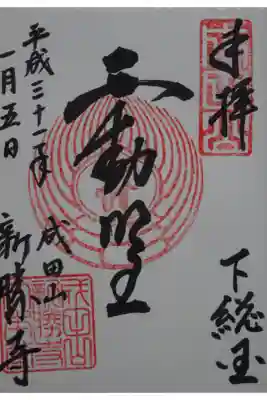 奉拝
下総国
不動明王
成田山
新勝寺
平成三十一年
一月五日